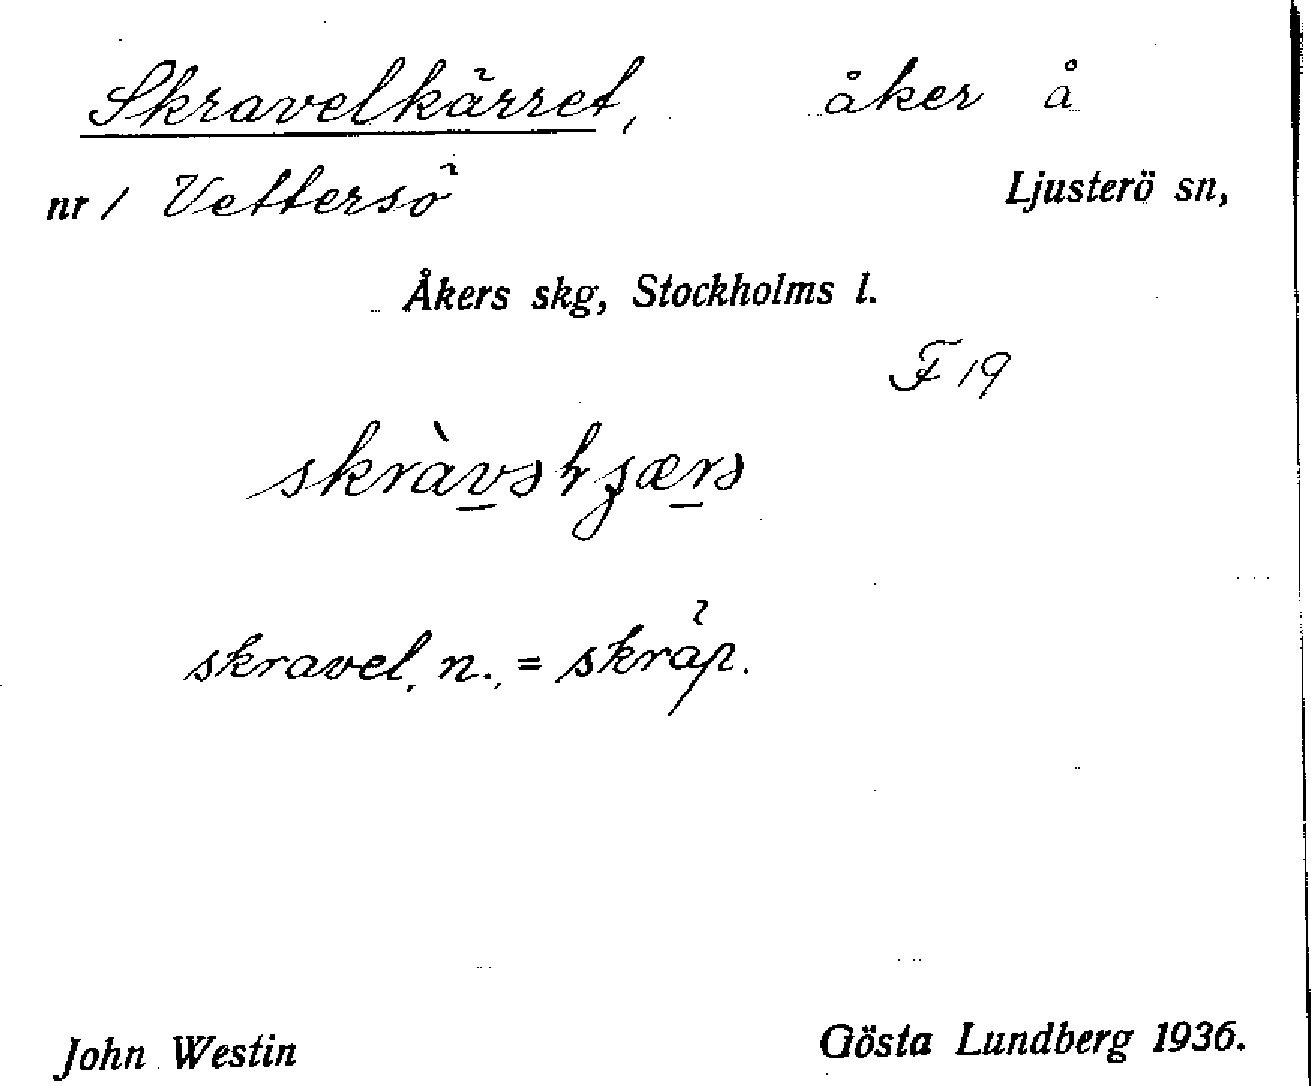 Skravelkärret, åker å
nr 1 Vettersö Ljusterö sn,
Åkers skg, Stockholms l.
F 19
skravel, n., = skräp.
John Westin Gösta Lundberg 1936.